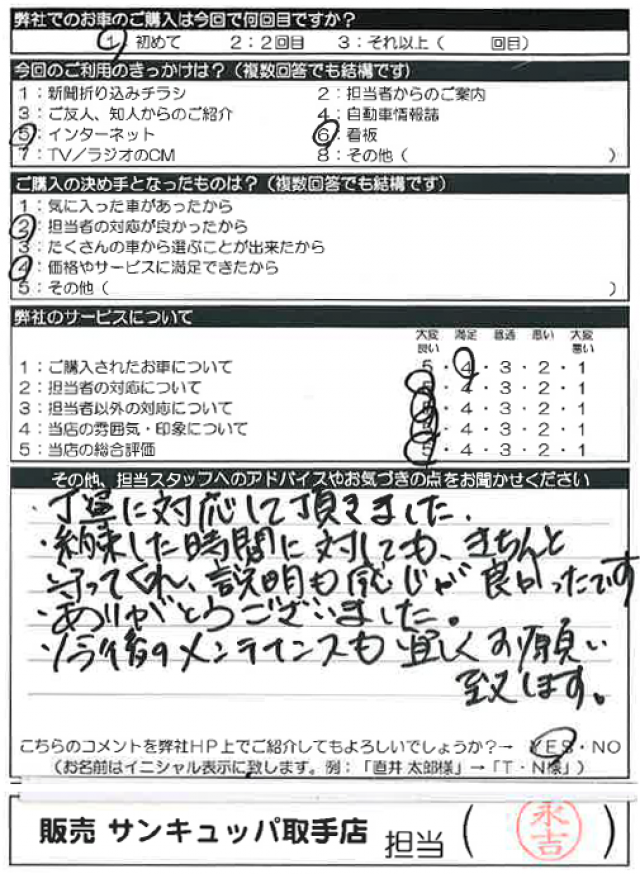 弊社でのお車のご購入は今回で何回目ですか？
1：初めて　2：2回目　3：それ以上（　回目）
今回のご利用のきっかけは？（複数回答でも結構です）
1：新聞折り込みチラシ　2：担当者からのご案内
3：ご友人、知人からのご紹介　4：自動車情報誌
5：インターネット　6：看板
7：TV／ラジオのCM　8：その他（　）
ご購入の決め手となったものは？（複数回答でも結構です）
1：気に入った車があったから
2：担当者の対応が良かったから
3：たくさんの車から選ぶことが出来たから
4：価格やサービスに満足できたから
5：その他（　）
弊社のサービスについて
大変良い　満足　普通　悪い　大変悪い
1：ご購入されたお車について　5・4・3・2・1
2：担当者の対応について　5・4・3・2・1
3：担当者以外の対応について　5・4・3・2・1
4：当店の雰囲気・印象について　5・4・3・2・1
5：当店の総合評価　5・4・3・2・1
その他、担当スタッフへのアドバイスやお気づきの点をお聞かせください
・丁寧に対応して頂きました.
・約束した時間に対しても、きちんと
守ってくれ、説明も感じが良かったです
・ありがとうございました。
・今後のメンテナンスも宜しくお願い
致します。
こちらのコメントを弊社HP上でご紹介してもよろしいでしょうか？→　YES・NO
（お名前はイニシャル表示に致します。例：「直井 太郎様」→「T・N様」）
販売 サンキュッパ取手店　担当（永吉）